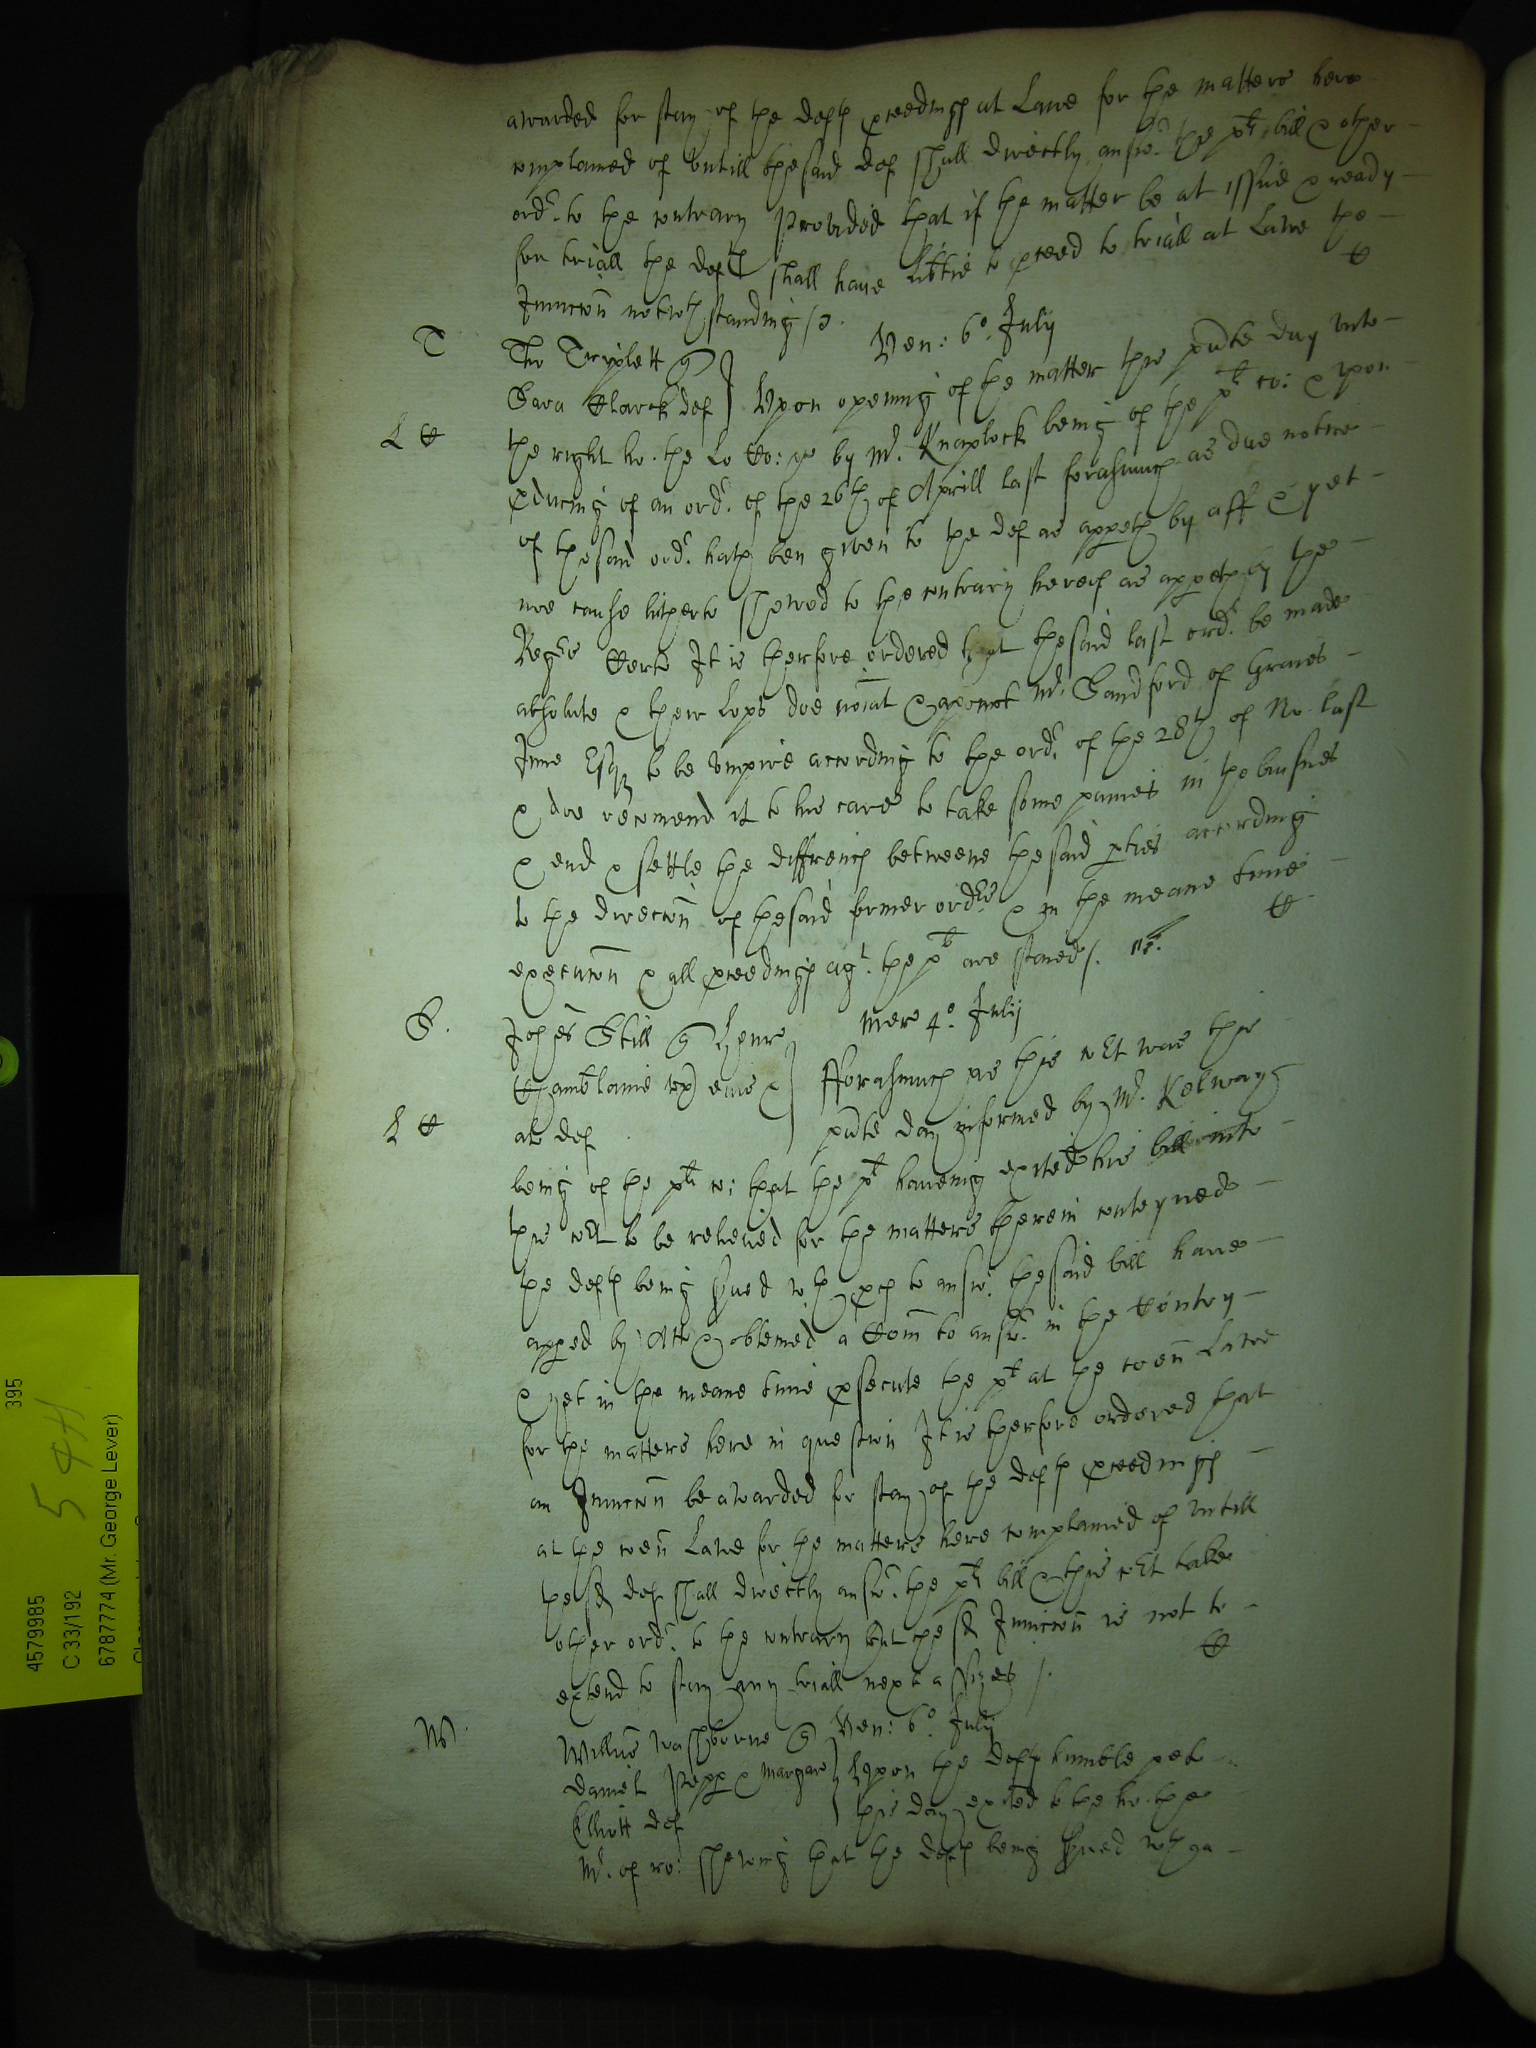 awarded for stay of the deftes pceedings at Lawe for the matters here
complained of untill the said def shall directly answ.r the plts bill & other
ord.r to the contrary Provided that if the matter be at issue & ready
for triall the deft shall have Lib'tie to pceed to triall at Lawe the
Iniunccon notwthstanding /
T
Ven: 6.o July
Tho Tryplett q
Sara Clarck def } Upon opening of the matter this pnte day unto
L C
the right ho. the Lo Co: rs by Mr. Knaplock being of the plts co: & upon
pducing of an ord.r of the 26th of Aprill last forasmuch as due notice
of the said ord.r hath ben given to the def as appeth by aff & yet
noe cause hitherto shewed to the contrary hereof as appeth by the
Reg.rs Certe It is therfore ordered that the said last ord.r be made
absolute & their Lopps doe noiat & appoint Mr. Sandford of Graies
Inne Esq to be umpire according to the ord.r of the 28th of No. last
& doe recomend it to his care to take some paines in the busines
& end & settle the diffrences betweene the said pties according
to the direccon of the said former ord.rs & in the meane time
execucon & all pceedings ag.t the plt are staied /.
C
S.
Mer 4.o July
Johes Still q Henr
Chamb'laine
als def
} Fforasmuch as this co'rt was this
pnte day informed by Mr. Kelway
L C
being of the plts co: that the plt haveing exited his bill into
this co'rt to be releived for the matters therein conteyned
the deftes being served wth pces to answ.r the said bill have
apped by Att & obteined a Com to answ.r in the Contry
& yet in the meane time psecute the plt at the coen Lawe
for the matters here in question It is therfore ordered that
an Iniunccon be awarded for stay of the deftes pceedings
at the coen Lawe for the matters here complained of untill
the sd def shall directly answ.r the plts bill & this co'rt take
other ord.r to the contrary but the sd Iniunccon is not to
extend to stay any triall next assizes /.
C
W.
Willus Washborne q Ven: 6.o July
Daniel Pepp & Margare
Elliott def
} Upon the deftes humble pet
this day exited to the ho. the
Mr. of ro: shewing that the deftes being served wth a
395
5 4H
4579985
C 33/192
6787774 (Mr. George Lever)